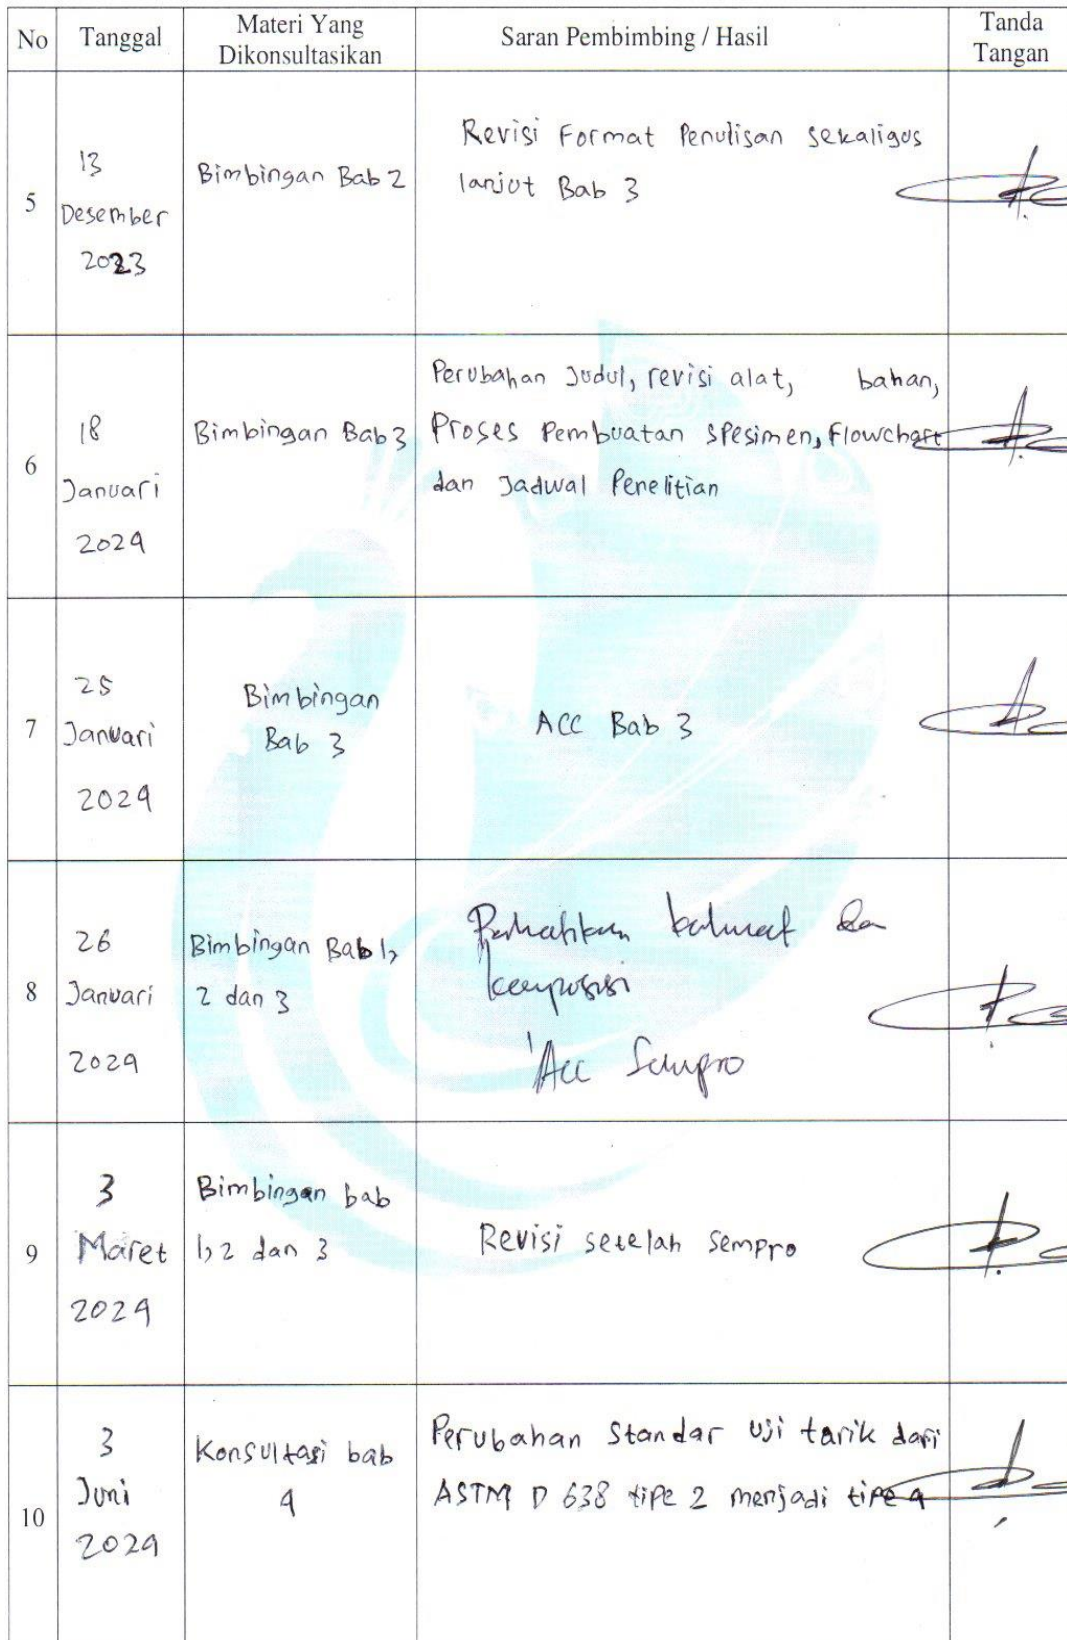 No Tanggal Materi Yang Dikonsultasikan Saran Pembimbing / Hasil Tanda Tangan
5
13
Desember
2023
Bimbingan Bab 2
Revisi Format Penulisan sekaligus
lanjut Bab 3
6
18
Januari
2024
Bimbingan Bab 3
Perubahan Judul, revisi alat, bahan,
Proses Pembuatan spesimen, flowchart
dan Jadwal Penelitian
7
25
Januari
2024
Bimbingan
Bab 3
ACC Bab 3
8
26
Januari
2024
Bimbingan Bab 1,
2 dan 3
kalimat dan
komposisi
Acc Sempro
9
3
Maret
2024
Bimbingan bab
1, 2 dan 3
Revisi setelah sempro
10
3
Juni
2024
Konsultasi bab
4
Perubahan Standar uji tarik dari
ASTM D 638 tipe 2 menjadi tipe 4